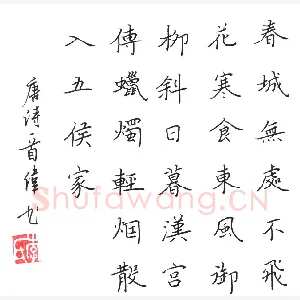 春城無處不飛
花寒食東風御
柳斜日暮漢宮
傳蠟燭輕烟散
入五侯家
唐詩一首偉書
Shufawang.CN